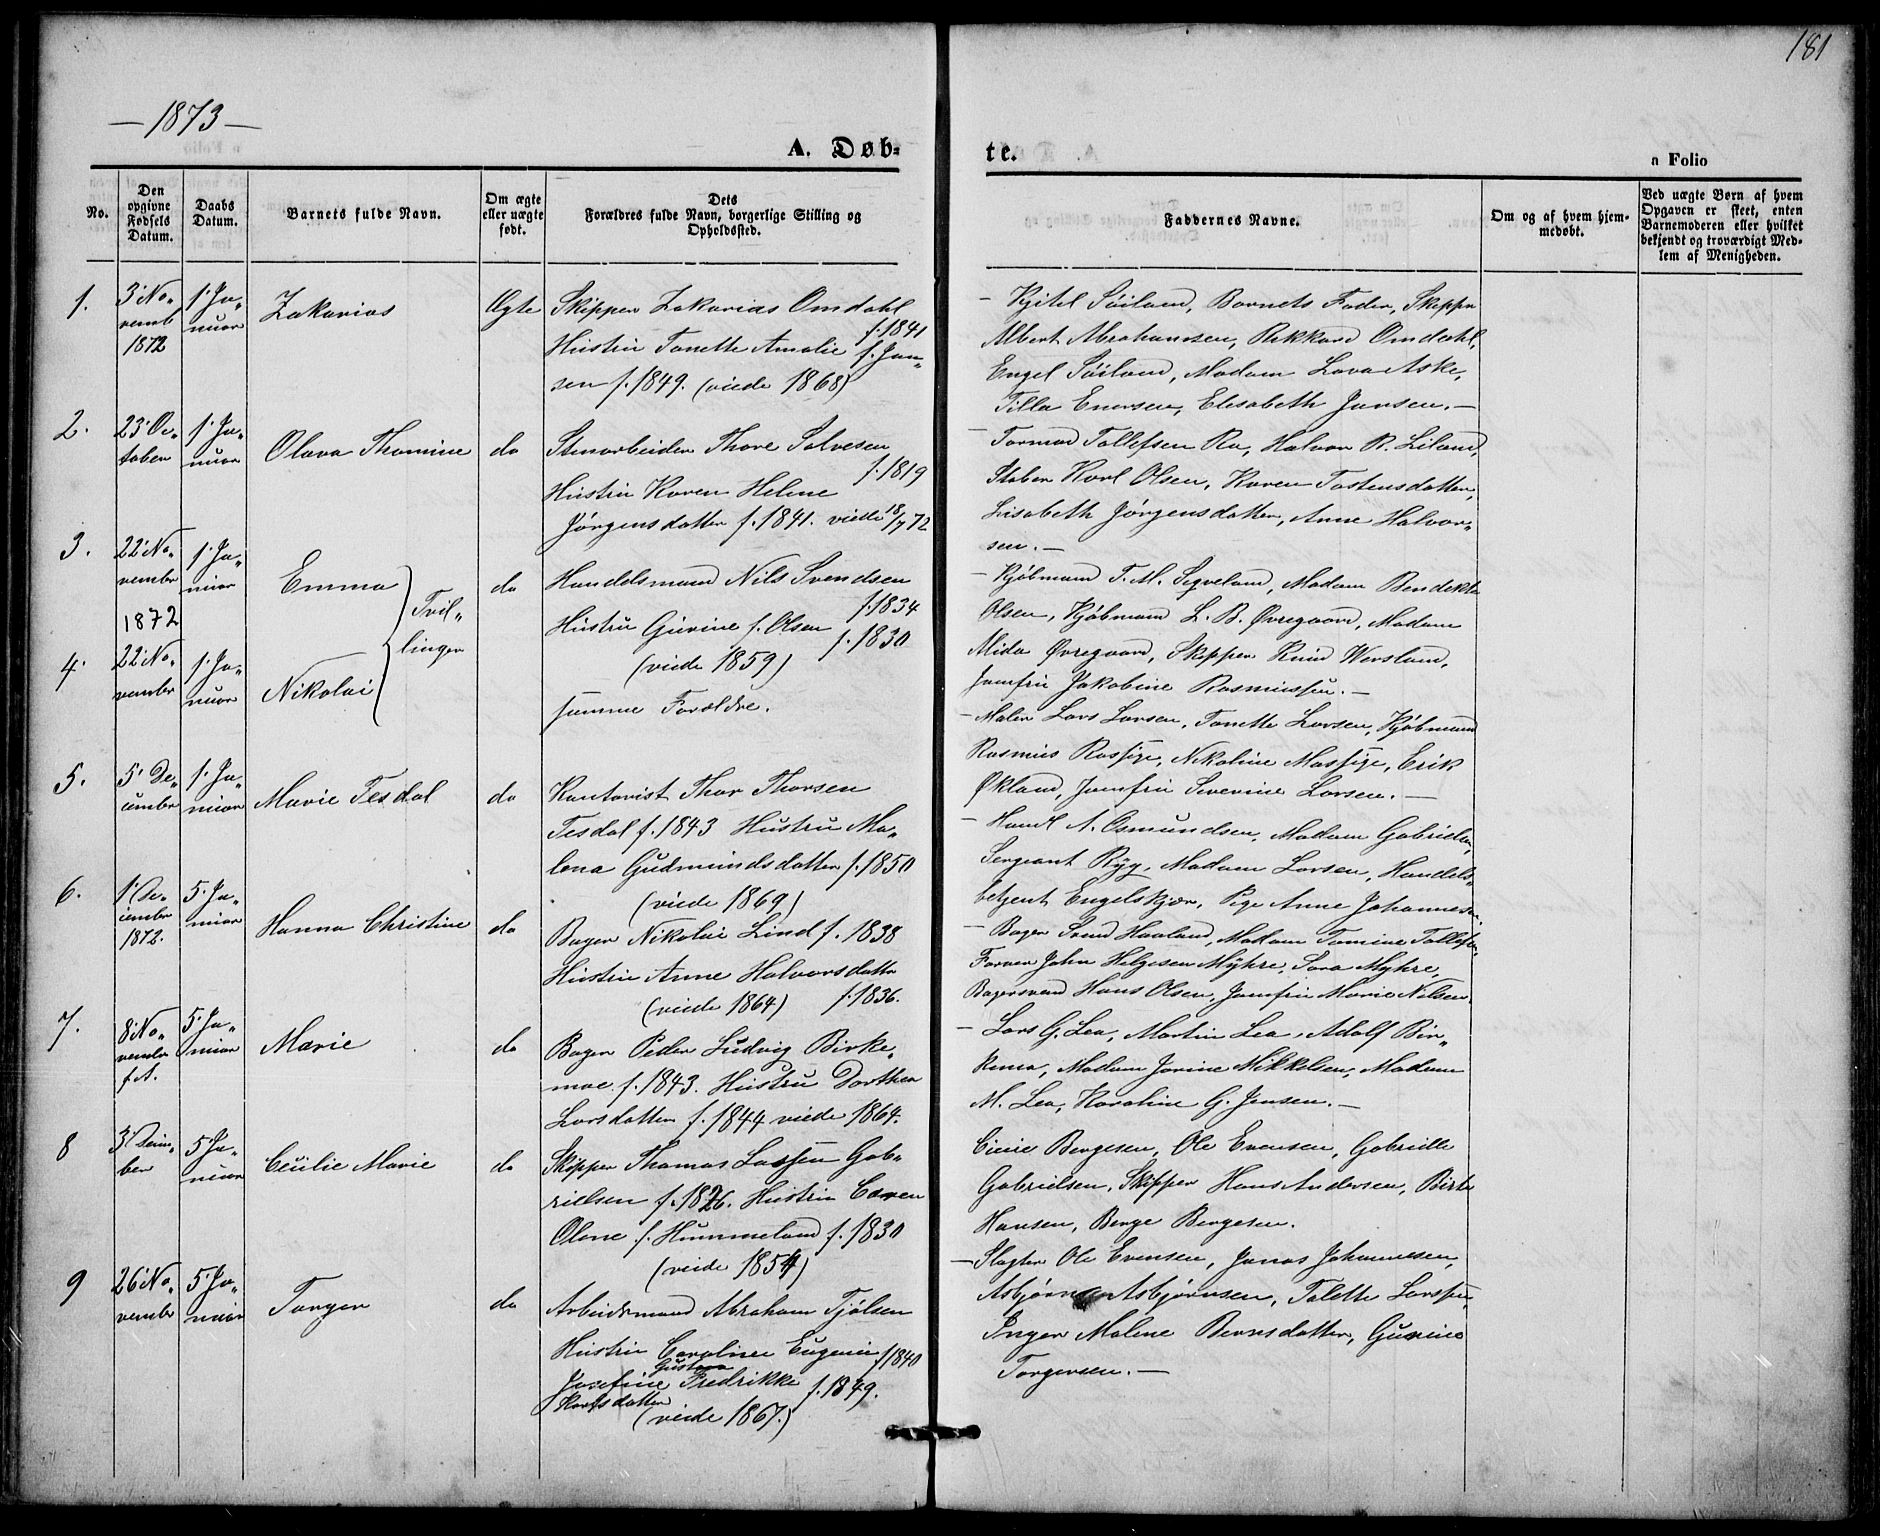 181
— 1873 —
A. Døb-
te.
n Folio
No.
Den opgivne Fødsels Datum.
Daabs Datum.
Barnets fulde Navn.
Om ægte eller uægte født.
Dets Forældres fulde Navn, borgerlige Stilling og Opholdssted.
Faddernes Navne.
Om og af hvem hjem-
medøbt.
Ved uægte Børn af hvem
Opgaven er skeet, enten
Barnemoderen eller hvilket
bekjendt og troværdigt Med-
lem af Menigheden.
1.
3' No-
vemb
1872
1' Ja-
nuar
Zakarias
Ægte
Skipper Zakarias Omdahl
f. 1841
Hustru Tonette Amalie f. Jan-
sen f. 1849. (viede 1868)
— Kjitel Söiland, Barnets Fader, Skipper
Albert Abrahamsen, Rikkard Omdahl,
Engel Söiland, Madam Lava Aske,
Tilla Enersen, Elisabeth Jansen. —
2.
23' Oc-
tober
1' Ja-
nuar
Olava Thomine
do
Stenarbeider Thore Salvesen
f. 1819
Hustru Karen Helene
Jörgensdatter f. 1841. viede 18/7 72
— Tormod Tollefsen Ra, Halvor R. Liland,
Staber Karl Olsen, Karen Tostensdatter,
Lisabeth Jörgensdatter, Anne Halvor-
sen. —
3.
22' No-
vember
1872
1' Ja-
nuar
Emma
Tvil-
linger
do
Handelsmand Nils Svendsen
f. 1834
Hustru Gurine f. Olsen f. 1830
(viede 1859)
— Kjöbmand T. M. Segveland, Madam Bendikte
Olsen, Kjöbmand L. B. Øvregaard, Madam
Mida Øvregaard, Skipper Knud Versland,
Jomfru Jakobine Rasmussen. —
4.
22' No-
vember
1' Ja-
nuar
Nikolai
samme Forældre.
— Maler Lars Larsen, Tonette Larsen, Kjöbmand
Rasmus Rossige, Nikoline Massige, Erik
Økland, Jomfru Severine Larsen. —
5.
5' De-
cember
1' Ja-
nuar
Marie Tesdal
do
Kontorist Thor Thorsen
Tesdal f. 1843 Hustru Ma-
lena Gudmundsdatter f. 1850
(viede 1869)
— Handl A. Osmundsen, Madam Gabrielsen,
Sergeant Ryg, Madam Larsen, Handels-
betjent Engelskjær, Pige Anne Johannesen.
6.
1' De-
cember
1872.
5' Ja-
nuar
Hanna Christine
do
Bager Nikolai Lind f. 1838
Hustru Anne Halvorsdatter
(viede 1864) f. 1836.
— Bager Svend Haaland, Madam Tomine Tollefsen,
Farver John Helgesen Myhre, Sara Myhre,
Bagersvend Hans Olsen, Jomfru Marie Nelsen.
7.
8' No-
vember
f. A.
5' Ja-
nuar
Marie
do
Bager Peder Ludvig Birke-
moe f. 1843. Hustru Dorthea
Larsdatter f. 1844 viede 1864.
— Lars G. Lea, Martin Lea, Adolf Bir-
kmo, Madam Jorine Mikkelsen, Madam
M. Lea, Karoline G. Jensen. —
8
3' Decem-
ber
5' Ja-
nuar
Cecilie Marie
do
Skipper Thomas Lassen Gab-
rielsen f. 1826. Hustru Caren
Olene f. Hummeland f. 1830
(viede 1854)
Cicie Bergesen, Ole Evensen, Gabrielle
Gabrielsen, Skipper Hans Andersen, Birte
Hansen, Berge Bergesen.
9
26' No-
vember
5' Ja-
nuar
Torger
do
Arbeidsmand Abraham Tjølsen
Hustru Caroline Eugenie f 1840
Gustava
Josefine Fredrikke f. 1849.
Karlsdatter
(viede 1867.)
— Slagter Ole Evensen, Jonas Johannesen,
Asbjørn Asbjørnsen, Talette Larsen,
Inger Malene Berntsdatter, Gurine
Torgersen. —